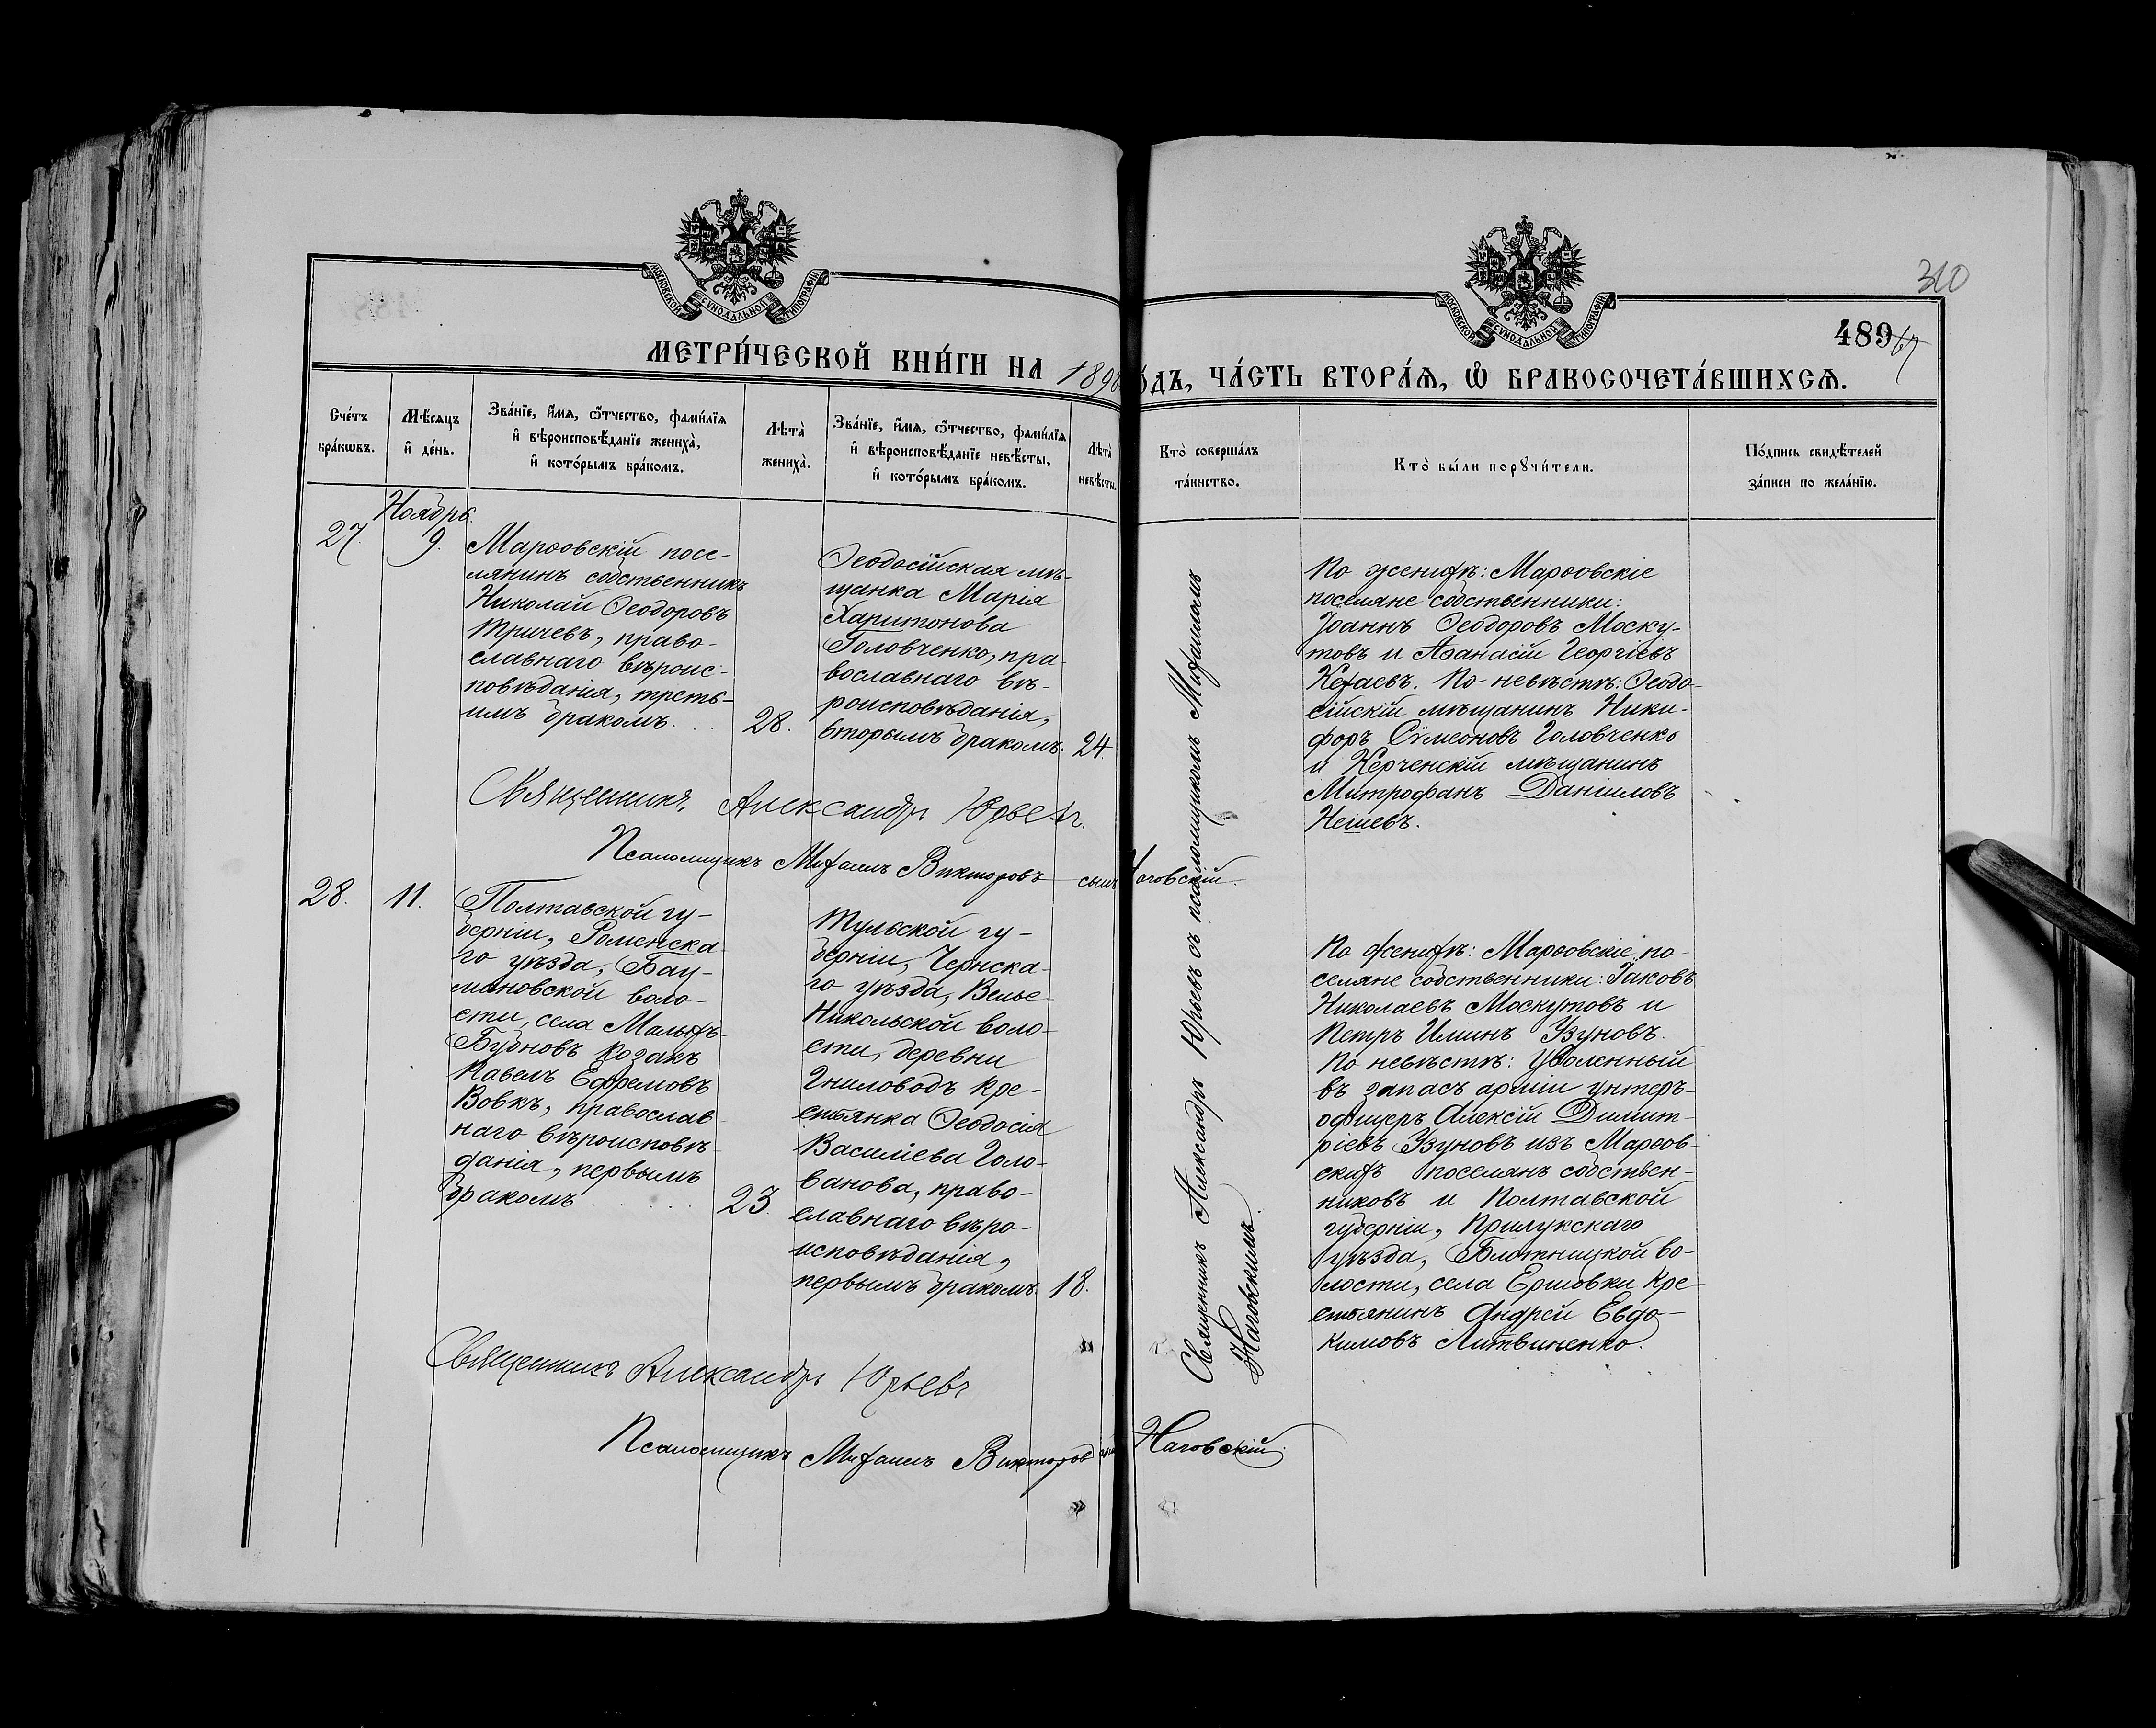 МОСКОВСКОЙ СѴНОДАЛЬНОЙ ТИПОГРАФІИ
МОСКОВСКОЙ СѴНОДАЛЬНОЙ ТИПОГРАФІИ
310
489
67
МЕТРИ́ЧЕСКОЙ КНИ́ГИ НА
О́ДЪ, ЧА́СТЬ ВТОРА́Ѧ, Ѽ БРАКОСОЧЕТА́ВШИХСѦ.
Сче́тъ
бра́кѡвъ.
Мѣ́сяцъ
и҆ де́нь.
Зва́нїе, и҆́мѧ, ѻ҆́тчество, фами́лїѧ
и҆ вѣроисповѣ́данїе жениха̀,
и҆ кото́рымъ бра́комъ.
Лѣ́та̀
жениха̀.
Зва́нїе, и҆́мѧ, ѻ҆́тчество, фами́лїѧ
и҆ вѣроисповѣ́данїе невѣ́сты,
и҆ кото́рымъ бра́комъ.
Лѣ́та̀
невѣ́сты.
Кто̀ соверша́лъ
та́инство.
Кто̀ бы́ли порꙋчи́тели.
По́дпись свидѣ́телей
за́писи по жела́нїю.
27.
Ноябрь.
9.
Марѳовскій посе-
лянинъ собственникъ
Николай Ѳеодоровъ
Тричевъ, право-
славнаго вѣроис-
повѣданія, треть-
имъ бракомъ. . .
28.
Ѳеодосійская мѣ-
щанка Марія
Харитонова
Головченко, пра-
вославнаго вѣ-
роисповѣданія,
вторымъ бракомъ.
24.
Священникъ Александръ Юрьевъ съ псаломщикомъ Михаиломъ
Наговскимъ.
По женихѣ: Марѳовскіе
поселяне собственники:
Іоаннъ Ѳеодоровъ Моску-
товъ и Аѳанасій Георгіевъ
Кехаевъ. По невѣстѣ: Ѳеодо-
сійскій мѣщанинъ Ники-
форъ Сѵмеоновъ Головченко
и Керченскій мѣщанинъ
Митрофанъ Даніиловъ
Нешевъ.
Священникъ Александръ Юрьевъ.
Псаломщикъ Михаилъ Викторовъ сынъ Наговскій.
28.
11.
Полтавской гу-
берніи, Роменска-
го уѣзда,
мановской воло-
сти, села Малыхъ
Бубновъ козакъ
Павелъ Ефремовъ
Вовкъ, православ-
наго вѣроисповѣ-
данія, первымъ
бракомъ . . . . . .
23.
Тульской гу-
берніи, Чернска-
го уѣзда, Велье-
Никольской воло-
сти, деревни
Гниловодъ кре-
стьянка Ѳеодосія
Василіева Голо-
ванова, право-
славнаго вѣро-
исповѣданія,
первымъ бракомъ.
18.
По женихѣ: Марѳовскіе по-
селяне собственники: Іаковъ
Николаевъ Москутовъ и
Петръ Илиинъ Узуновъ.
По невѣстѣ: Уволенный
въ запасъ арміи унтеръ-
офицеръ Алексій Димит-
ріевъ Узуновъ изъ Марѳов-
скихъ поселянъ собствен-
никовъ и Полтавской
губерніи, Прилукскаго
уѣзда, Блотницкой во-
лости, села Ершовки кре-
стьянинъ Андрей Евдо-
кимовъ Литвиненко.
Священникъ Александръ Юрьевъ
Псаломщикъ Михаилъ Викторовъ сынъ Наговскій.